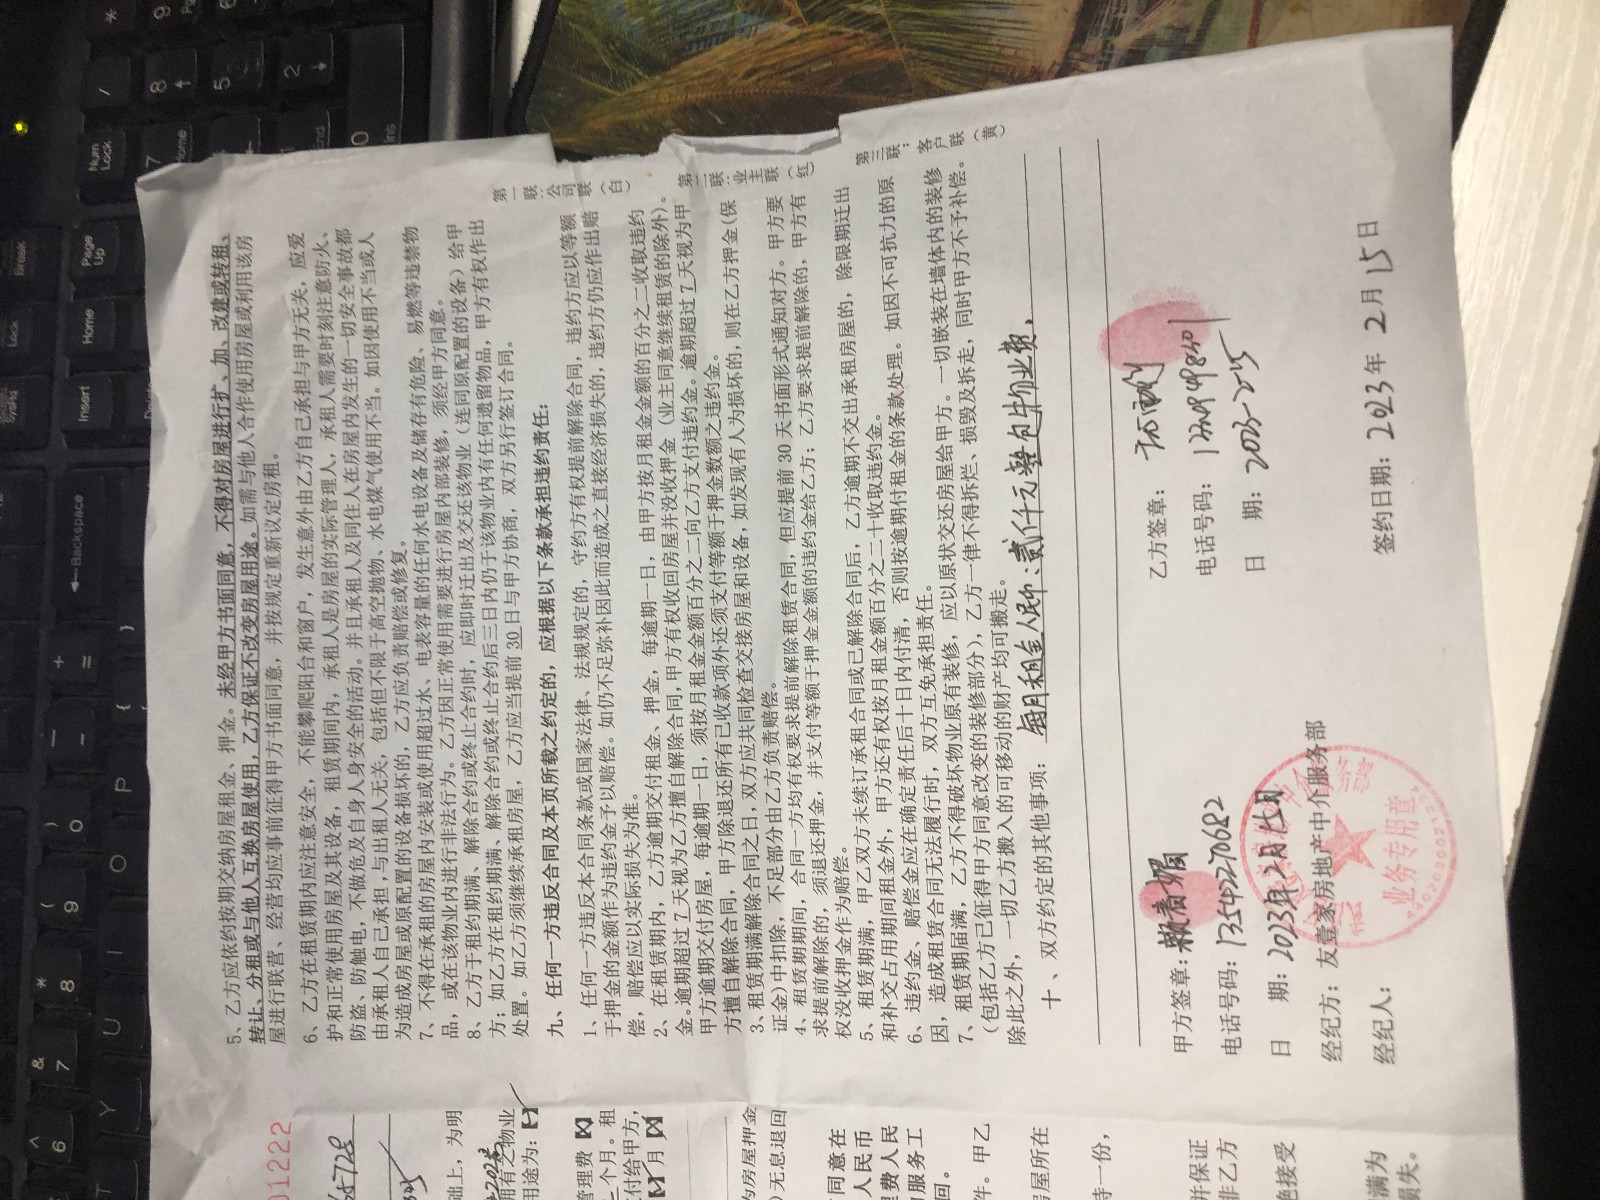 5、乙方应依约按期交纳房屋租金、押金。未经甲方书面同意，不得对房屋进行扩、加、改建或转租、
转让、分租或与他人互换房屋使用，乙方保证不改变房屋用途。如需与他人合作使用房屋或利用该房
屋进行联营、经营均应事前征得甲方书面同意，并按规定重新议定房租。
6、乙方在租赁期内应注意安全，不能攀爬阳台和窗户，发生意外由乙方自己承担与甲方无关，应爱
护和正常使用房屋及其设备，租赁期间内，承租人是房屋的实际管理人，承租人需要时刻注意防火、
防盗、防触电，不做危及自身人身安全的活动。并且承租人及同住人在房屋内发生的一切安全事故都
由承租人自己承担，与出租人无关，包括但不限于高空抛物、水电煤气使用不当。如因使用不当或人
为造成房屋或原配置的设备损坏的，乙方应负责赔偿或修复。
7、不得在承租的房屋内安装或使用超过水、电表容量的任何水电设备及储存有危险、易燃等违禁物
品，或在该物业内进行非法行为。乙方因正常使用需要进行房屋内部装修，须经甲方同意。
8、乙方于租约期满、解除合约或终止合约时，应即时迁出及交还该物业（连同原配置的设备）给甲
方；如乙方在租约期满、解除合约或终止合约后三日内仍于该物业内有任何遗留物品，甲方有权作出
处置。如乙方须继续承租房屋，乙方应当提前30日与甲方协商，双方另行签订合同。
九、任何一方违反合同及本页所载之约定的，应根据以下条款承担违约责任：
1、任何一方违反本合同条款或国家法律、法规规定的，守约方有权提前解除合同，违约方应以等额
于押金的金额作为违约金予以赔偿。如仍不足弥补因此而造成之直接经济损失的，违约方仍应作出赔
偿，赔偿应以实际损失为准。
2、在租赁期内，乙方逾期交付租金、押金，每逾期一日，由甲方按月租金金额的百分之二收取违约
金。逾期超过7天视为乙方擅自解除合同，甲方有权收回房屋并没收押金（业主同意继续租赁的除外）。
甲方逾期交付房屋，每逾期一日，须按月租金金额百分之二向乙方支付违约金。逾期超过7天视为甲
方擅自解除合同，甲方除退还所有已收款项外还须支付等额于押金数额之违约金。
3、租赁期满解除合同之日，双方应共同检查交接房屋和设备，如发现有人为损坏的，则在乙方押金(保
证金)中扣除，不足部分由乙方负责赔偿。
4、租赁期期间，合同一方均有权要求提前解除租赁合同，但应提前30天书面形式通知对方。甲方要
求提前解除的，须退还押金，并支付等额于押金金额的违约金给乙方；乙方要求提前解除的，甲方有
权没收押金作为赔偿。
5、租赁期满，甲乙双方未续订承租合同或已解除合同后，乙方逾期不交出承租房屋的，除限期迁出
和补交占用期间租金外，甲方还有权按月租金额百分之二十收取违约金。
6、违约金、赔偿金应在确定责任后十日内付清，否则按逾期付租金的条款处理。如因不可抗力的原
因，造成租赁合同无法履行时，双方互免承担责任。
7、租赁期届满，乙方不得破坏物业原有装修，应以原状交还房屋给甲方。一切嵌装在墙体内的装修
（包括乙方已征得甲方同意改变的装修部分），乙方一律不得拆烂、损毁及拆走，同时甲方不予补偿。
除此之外，一切乙方搬入的可移动的财产均可搬走。
十、双方约定的其他事项：每月租金人民币：贰仟元整包年物业费.
甲方签章：赖春媚
电话号码：13542270682
日 期：2023年2月15日
经纪方：友壹家房地产中介服务部
经纪人：
乙方签章：
电话号码：
日 期：2023-2-15
签约日期：2023年2月15日
第一联：公司联（白）
第二联：业主联（红）
第三联：客户联（黄）
业务专用章
01222
础上，为明
拥有之物业
用途为：
管理费
二个月。租
付给甲方，
月
的房屋押金
）无息退回
同意在
人民币
理费人民
服务工
回。
件。甲乙
房屋所在
持一份，
并保证
非乙方
绝接受
满为
损失。
Num Lock
Home
Page Up
Insert
Backspace